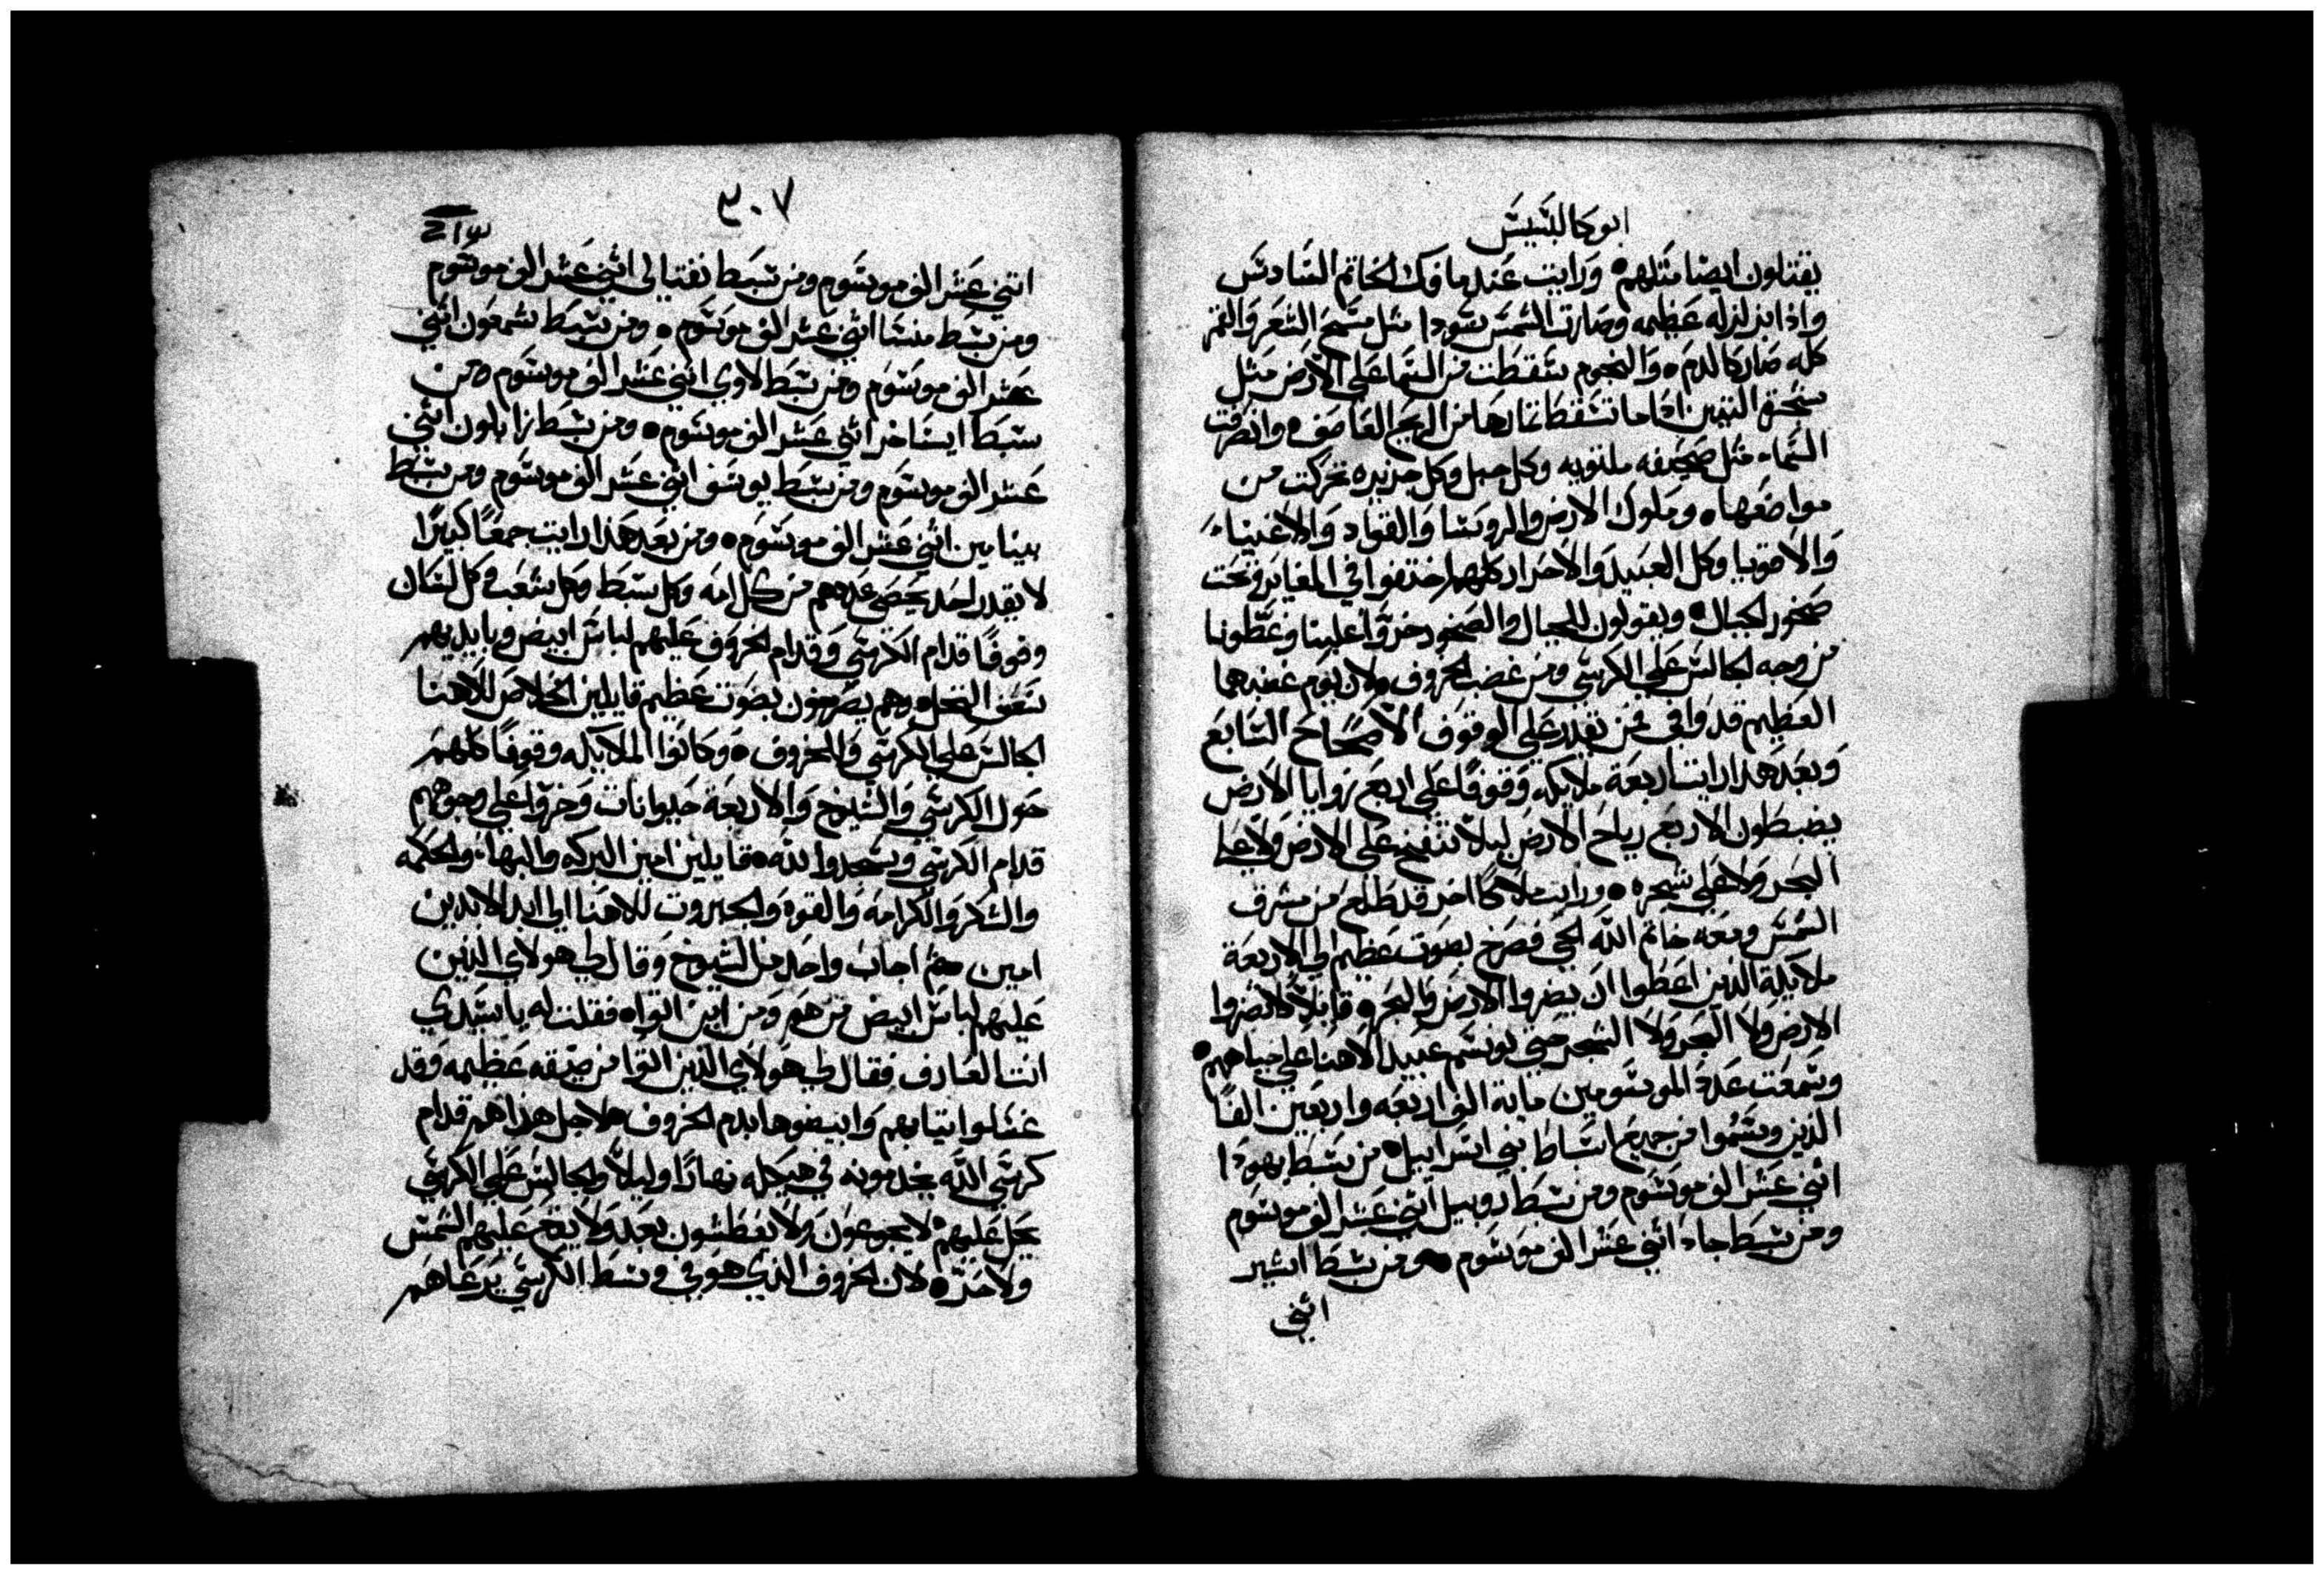 ابوكالبسيس
يقتلون ايضا مثلهم ۰ ورايت عندما فك الخاتم السادس
واذا بزلزله عظيمه وصارت الشمس سودا مثل مسح الشعر والقمر
كله صار كالدم ۰ والنجوم تسقطت من السما على الارض مثل
شجرة التين اذا ما تسقط ثمارها من الريح العاصف ۰ وانصرفت
السماء مثل صحيفه ملتويه وكل جبل وكل جزيره تحركت من
مواضعها ۰ وملوك الارض والروسا والقواد والاغنياء
والاقويا وكل العبيد والاحرار كلهم اختفوا في المغاير وتحت
صخور الجبال ۰ ويقولون للجبال والصخور خروا علينا وغطونا
من وجه الجالس على الكرسي ومن غضب الخروف ۰ لان يوم غضبهما
العظيم قد وافى فمن يقدر على الوقوف الاصحاح السابع
وبعد هذا رايت اربعة ملايكه وقوفا على اربع زوايا الارض
يضبطون الاربع رياح الارض ليلا تنفخ على الارض ولا على
البحر ولا على شجره ۰ ورايت ملاكا اخر قد طلع من مشرق
الشمس ومعه خاتم الله الحي فصرخ بصوت عظيم الى الاربعة
ملايكة الذين اعطوا ان يضروا الارض والبحر ۰ قايلا لا تضروا
الارض ولا البحر ولا الشجر حتى نوسم عبيد الاهنا على جباههم ۰
وسمعت عدد الموسومين ماية الف اربعه واربعين الفا
الذين وسموا من جميع اسباط بني اسراييل ۰ من سبط يهودا
اثني عشر الف موسوم ومن سبط روبيل اثني عشر الف موسوم
ومن سبط جاد اثني عشر الف موسوم ۰ ومن سبط اشير
اثني
٣٠٧
اثني عشر الف موسوم ومن سبط نفتالي اثني عشر الف موسوم
ومن سبط منسا اثني عشر الف موسوم ۰ ومن سبط شمعون اثني
عشر الف موسوم ومن سبط لاوي اثني عشر الف موسوم ومن
سبط ايساخر اثني عشر الف موسوم ۰ ومن سبط زابلون اثني
عشر الف موسوم ومن سبط يوسف اثني عشر الف موسوم ومن سبط
بينامين اثني عشر الف موسوم ۰ ومن بعد هذا رايت جمعا كبيرا
لا يقدر احد يحصي عددهم من كل امه وكل سبط وكل شعب وكل لسان
وقوفا قدام الكرسي وقدام الخروف عليهم لباس ابيض وبايديهم
سعف النخل ۰ وهم يصرخون بصوت عظيم قايلين الخلاص للاهنا
الجالس على الكرسي والخروف ۰ وكانوا الملايكه وقوفا كلهم
حول الكرسي والشيوخ والاربعة حيوانات وخروا على وجوههم
قدام الكرسي وسجدوا لله ۰ قايلين امين البركه والبهاء والحكمه
والشكر والكرامه والقوه والجبروت للاهنا الى ابد الابدين
امين ثم اجاب واحد من الشيوخ وقال لي هولاي الذين
عليهم لباس ابيض من هم ومن اين اتوا ۰ فقلت له يا سيدي
انت العارف فقال لي هولاي الذين اتوا من ضيقه عظيمه وقد
غسلوا ثيابهم وابيضوها بدم الخروف ۰ لاجل هذا هم قدام
كرسي الله يخدمونه في هيكله نهارا وليلا والجالس على الكرسي
يحل عليهم لا يجوعون ولا يعطشون بعد ولا يقع عليهم الشمس
ولا حر ۰ لان الخروف الذي هو في وسط الكرسي يرعاهم